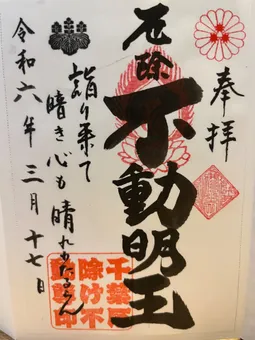 奉拝
厄除
不動明王
詣り来て
暗き心も
晴れもたらん
令和六年三月十七日
千葉厄
除け不
動尊印